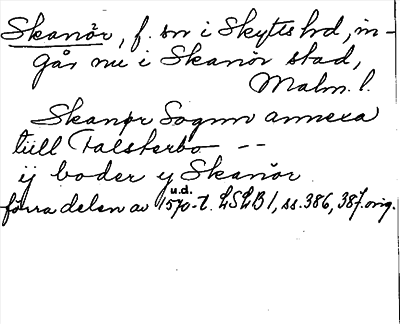 Skanör, f. sn i Skytts hd, in-
går nu i Skanör stad,
Malm. l.
Skanør Sognn annexa
tiill Falsterbo --
ij boder y Skanör
u.d.
förra delen av 1570-t. LSLB 1, ss. 386, 387. orig.